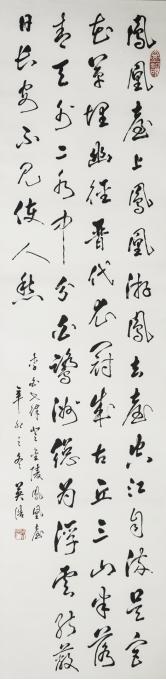 鳳凰臺上鳳凰游鳳去臺空江自流吳宮
花草埋幽徑晋代衣冠成古丘三山半落
青天外二水中分白鷺洲總為浮雲能蔽
日長安不見使人愁
李白七律登金陵鳳凰臺
辛卯之冬